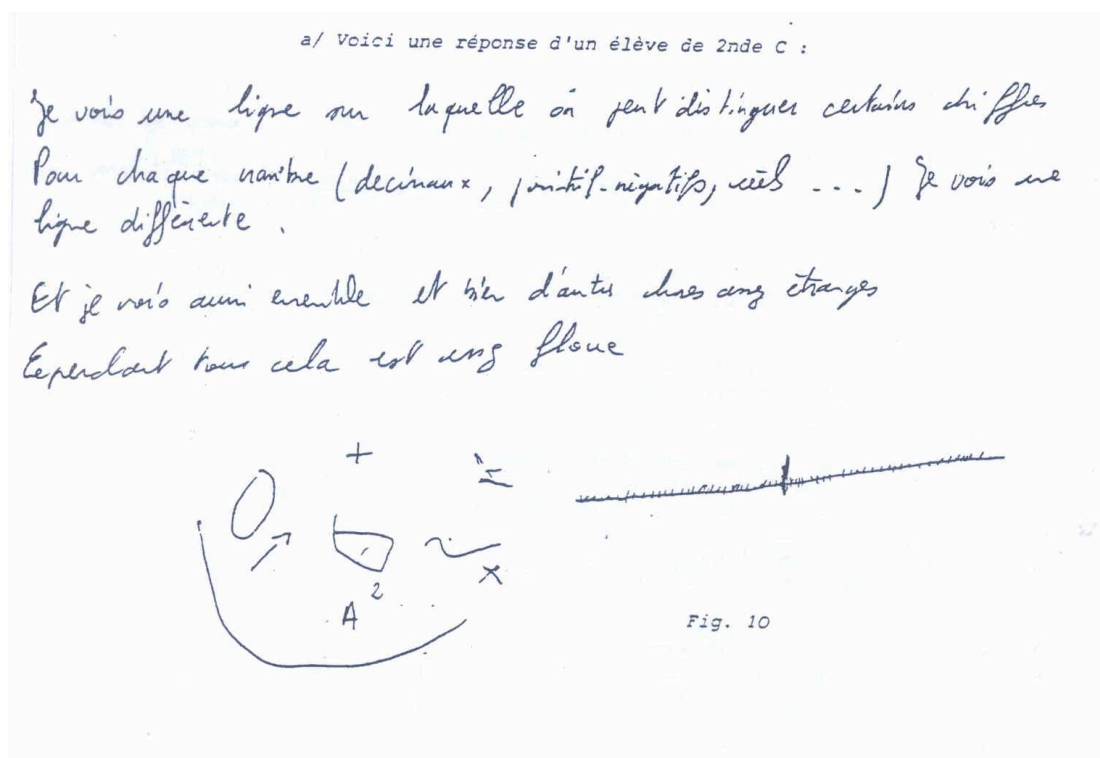 a/ Voici une réponse d'un élève de 2nde C :
Je vois une ligne sur laquelle on peut distinguer certains chiffres
Pour chaque nombre (decimaux, positif-négatifs, réels ...) Je vois une
ligne différente.
Et je vois aussi ensemble et bien d'autres choses assez étranges
Cependant tous cela est assez floue
+
=
x
A 2
Fig. 10